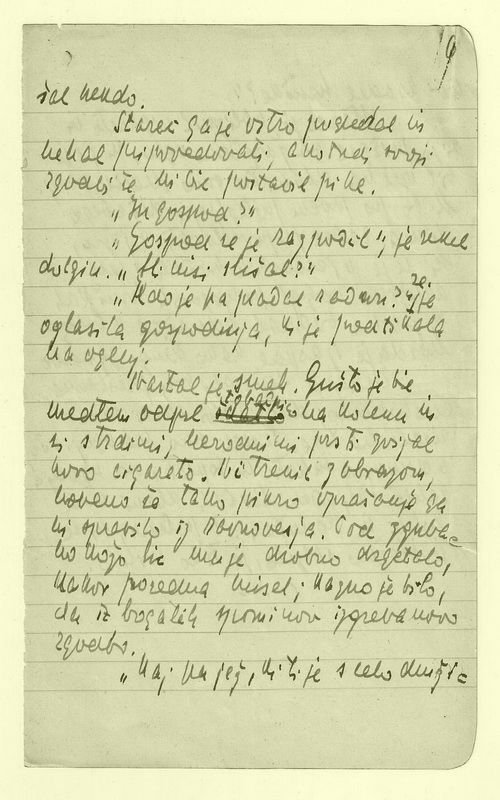 9
šal nekdo.
Starec ga je ostro pogledal in
nehal pripovedovati, a kot da svoji
zgodbi še ni bil postavil pike.
„In gospod?“
„Gospod se je razpočil“, je rekel
dolgin. „Ali nisi slišal?“
„Kdo je pa plačal račun?“, se je
oglasila gospodinja, ki je podtikala
na ognju.
Nastal je smeh. Gušto je bil
medtem odprl tobačnico na kolenu in
si s trdimi, nerodnimi prsti zvijal
novo cigareto. Ni trenil z obrazom,
nobeno še tako pikro vprašanje ga
ni spravilo iz ravnovesja. Pod zguba=
no kožo lic mu je drobno drgetalo,
kakor poredna misel; kazno je bilo,
da iz bogatih spominov izgreba novo
zgodbo.
„Kaj pa jež, ki ti je s celo druži=